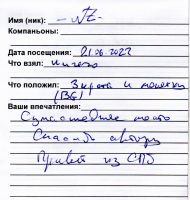 Имя (ник): - NZ -
Компаньоны:
Дата посещения: 21.06.2022
Что взял: ничего
Что положил: Зирота и монетки
(BG)
Ваши впечатления:
Сумасшедшее место
Спасибо автору
Привет из СПб